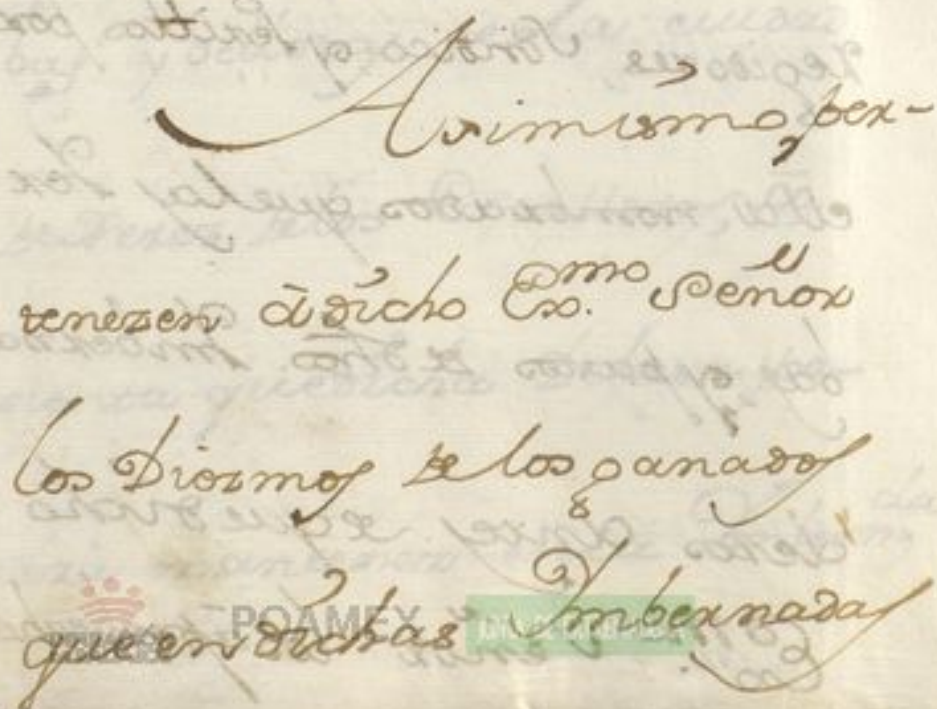 Asimismo, per-
tenezen à dicho Exmo. Señor
los Diezmos de los ganados
que en dichas Imbernadas
POAMEX